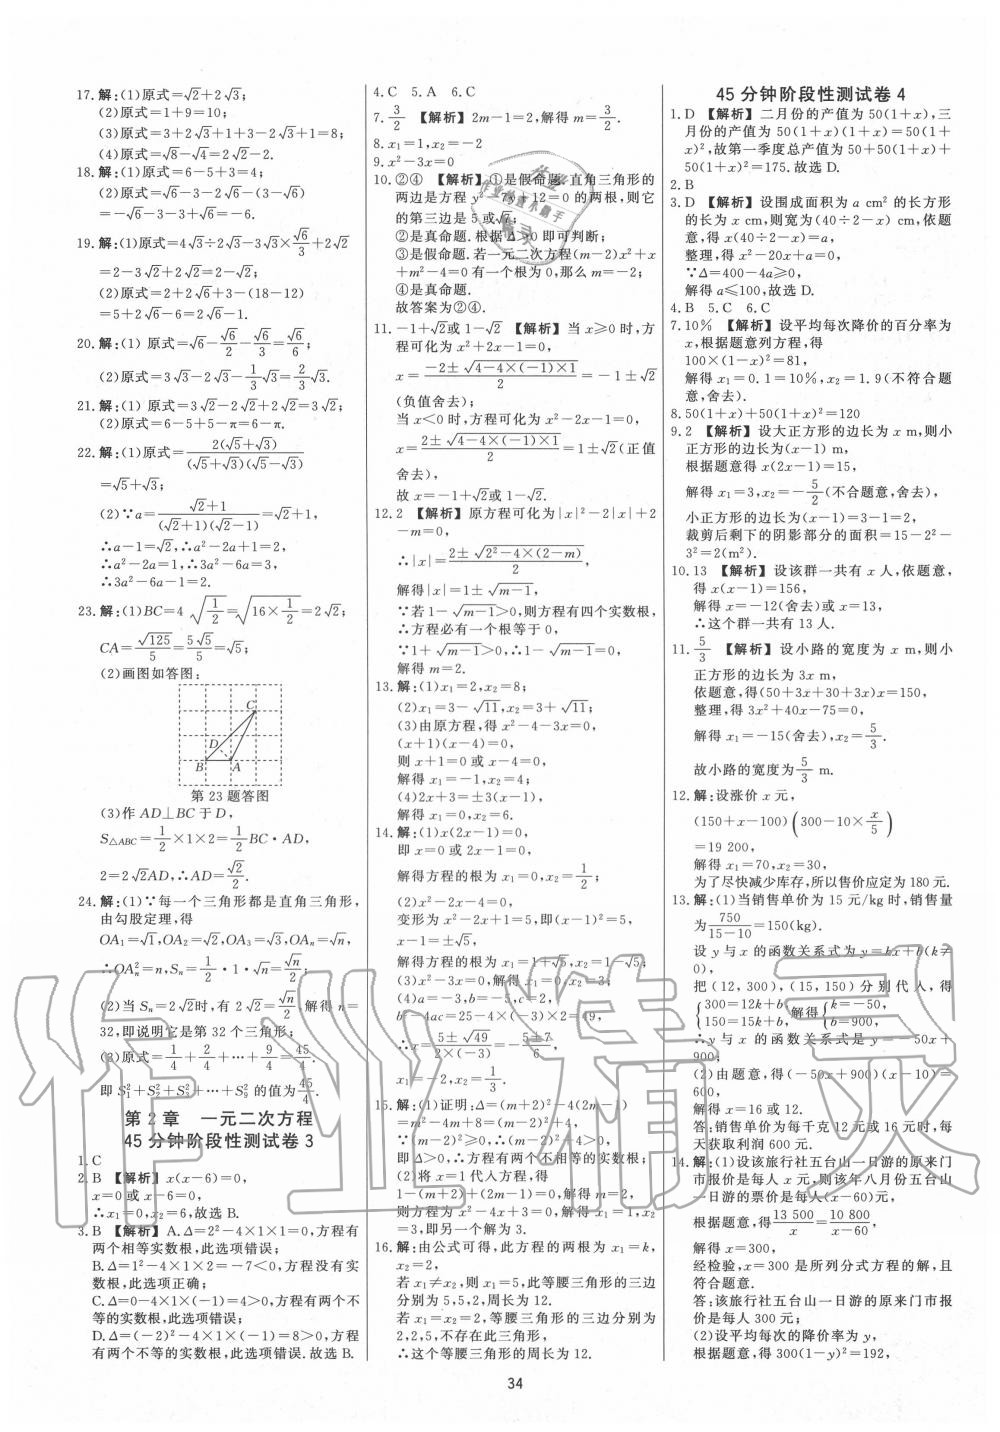 17. 解:(1)原式=√2+2√3;
(2)原式=1+9=10;
(3)原式=3+2√3+1+3-2√3+1=8;
(4)原式=√8-√4=2√2-2.
18. 解:(1)原式=6-5+3=4;
(2)原式=√6-3-2√6-(3-√6)
=-√6-3-3+√6=-6.
19. 解:(1)原式=4√3÷2√3-3√3×√6/3+2√2
=2-3√2+2√2=2-√2;
(2)原式=2+2√6+3-(18-12)
=5+2√6-6=2√6-1.
20. 解:(1) 原式=√6-√6/2-√6/3=√6/6;
(2)原式=3√3-2√3-1/3√3=2/3√3.
21. 解:(1) 原式=3√2-2√2+2√2=3√2;
(2)原式=6-5+5-π=6-π.
22. 解:(1)原式=2(√5+√3)/(√5+√3)(√5-√3)
=√5+√3;
(2)∵a=√2+1/(√2+1)(√2-1)=√2+1,
∴a-1=√2,∴a²-2a+1=2,
∴a²-2a=1,∴3a²-6a=3,
∴3a²-6a-1=2.
23. 解:(1)BC=4√1/2=√16×1/2=2√2;
CA=√125/5=5√5/5=√5;
(2)画图如答图:
C
D
B A
第 23 题答图
(3)作 AD⊥BC 于 D,
S△ABC=1/2×1×2=1/2BC·AD,
2=2√2AD,∴AD=√2/2.
24. 解:(1)∵每一个三角形都是直角三角形,
由勾股定理,得
OA₁=√1,OA₂=√2,OA₃=√3,OAₙ=√n,
∴OAₙ²=n,Sₙ=1/2·1·√n=√n/2;
(2)当 Sₙ=2√2时,有 2√2=√n/2,解得 n=
32,即说明它是第 32 个三角形;
(3)原式=1/4+2/4+…+9/4=45/4.
即 S₁²+S₂²+S₃²+…+S₉² 的值为45/4.
第 2 章 一元二次方程
45 分钟阶段性测试卷 3
1. C
2. B 【解析】x(x-6)=0,
x=0 或 x-6=0,
∴x₁=0,x₂=6,故选 B.
3. B 【解析】A.Δ=2²-4×1×1=0,方程有
两个相等实数根,此选项错误;
B.Δ=1²-4×1×2=-7<0,方程没有实
数根,此选项正确;
C.Δ=0-4×1×(-1)=4>0,方程有两个不
等的实数根,此选项错误;
D.Δ=(-2)²-4×1×(-1)=8>0,方程
有两个不等的实数根,此选项错误.故选 B.
4. C 5. A 6. C
7. 3/2 【解析】2m-1=2,解得 m=3/2.
8. x₁=1,x₂=-2
9. x²-3x=0
10. ②④ 【解析】①是假命题.直角三角形的
两边是方程 y²-7y+12=0 的两根,则它
的第三边是 5 或√7;
②是真命题.根据Δ>0 即可判断;
③是假命题.若一元二次方程(m-2)x²+x
+m²-4=0 有一个根为 0,那么 m=-2;
④是真命题.
故答案为②④.
11. -1+√2或 1-√2 【解析】当 x≥0 时,方
程可化为 x²+2x-1=0,
x=-2±√4-4×(-1)×1/2=-1±√2
(负值舍去);
当 x<0 时,方程可化为 x²-2x-1=0,
x=2±√4-4×(-1)×1/2=1±√2(正值
舍去),
故 x=-1+√2或 1-√2.
12. 2 【解析】原方程可化为|x|²-2|x|+2
-m=0,
∴|x|=2±√2²-4×(2-m)/2,
解得|x|=1±√m-1,
∵若 1-√m-1>0,则方程有四个实数根,
∴方程必有一个根等于 0,
∵1+√m-1>0,∴1-√m-1=0,
解得 m=2.
13. 解:(1)x₁=2,x₂=8;
(2)x₁=3-√11,x₂=3+√11;
(3)由原方程,得 x²-4-3x=0,
(x+1)(x-4)=0,
则 x+1=0 或 x-4=0,
解得 x₁=-1,x₂=4;
(4)2x+3=±3(x-1),
解得 x₁=0,x₂=6.
14. 解:(1)x(2x-1)=0,
即 x=0 或 2x-1=0,
解得方程的根为 x₁=0,x₂=1/2;
(2)x²-2x-4=0,
变形为 x²-2x+1=5,即(x-1)²=5,
x-1=±√5,
解得方程的根为 x₁=1+√5,x₂=1-√5;
(3)x²-3x=0,解得 x₁=0,x₂=3;
(4)a=-3,b=-5,c=2,
b²-4ac=25-4×(-3)×2=49,
∴x=5±√49/2×(-3)=-5±7/6,
x₁=-2,x₂=1/3.
15. 解:(1)证明:Δ=(m+2)²-4(2m-1)
=m²-4m+8=(m-2)²+4,
∵(m-2)²≥0,∴(m-2)²+4>0,
即 Δ>0,∴方程有两个不相等的实数根;
(2)将 x=1 代人方程,得
1-(m+2)+(2m-1)=0,解得 m=2,
则方程为 x²-4x+3=0,解得 x₁=1,x₂
=3,即另一个解为 3.
16. 解:由公式可得,此方程的两根为 x₁=k,
x₂=2.
若 x₁≠x₂,则 x₁=5,此等腰三角形的三边
分别为 5,5,2,周长为 12.
若 x₁=x₂=2,等腰三角形的三边分别为
2,2,5,不存在此三角形,
∴这个等腰三角形的周长为 12.
45 分钟阶段性测试卷 4
1. D 【解析】二月份的产值为 50(1+x),三
月份的产值为 50(1+x)(1+x)=50(1+
x)²,故第一季度总产值为 50+50(1+x)+
50(1+x)²=175.故选 D.
2. B
3. D 【解析】设围成面积为 a cm² 的长方形
的长为 x cm,则宽为(40÷2-x) cm,依题
意,得 x(40÷2-x)=a,
整理,得 x²-20x+a=0,
∵Δ=400-4a≥0,
解得 a≤100,故选 D.
4. B 5. C 6. C
7. 10% 【解析】设平均每次降价的百分率为
x,根据题意列方程,得
100×(1-x)²=81,
解得 x=0.1=10%,x=1.9(不符合题
意,舍去).
8. 50(1+x)+50(1+x)²=120
9. 2 【解析】设大正方形的边长为 x m,则小
正方形的边长为(x-1) m,
根据题意得 x(2x-1)=15,
解得 x₁=3,x₂=-5/2(不合题意,舍去),
小正方形的边长为(x-1)=3-1=2,
裁剪后剩下的阴影部分的面积=15-2²-
3²=2(m²).
10. 13 【解析】设该群一共有 x 人,依题意,
得 x(x-1)=156,
解得 x=-12(舍去)或 x=13,
∴这个群一共有 13 人.
11. 5/3 【解析】设小路的宽度为 x m,则小
正方形的边长为 3x m,
依题意,得(50+3x+30+3x)x=150,
整理,得 3x²+40x-75=0,
解得 x₁=-15(舍去),x₂=5/3.
故小路的宽度为5/3 m.
12. 解:设涨价 x 元,
(150+x-100)(300-10×x/5)
=19 200,
解得 x₁=70,x₂=30,
为了尽快减少库存,所以售价应定为 180 元.
13. 解:(1)当销售单价为 15 元/kg 时,销售量
为750/15-10=150(kg).
设 y 与 x 的函数关系式为 y=kx+b(k≠
0),
把 (12, 300), (15, 150) 分别代人,得
{300=12k+b, 150=15k+b, 解得{k=-50, b=900,
∴y 与 x 的函数关系式是 y=-50x+
900;
(2)由题意,得(-50x+900)(x-10)=
600,
解得 x=16 或 12.
答:销售单价为每千克 12 元或 16 元时,每
天获取利润 600 元.
14. 解:(1)设该旅行社五台山一日游的原来门
市报价是每人 x 元,则该年八月份五台山
一日游的票价是每人(x-60)元,
根据题意,得13 500/x=10 800/x-60,
解得 x=300,
经检验,x=300 是所列分式方程的解,且
符合题意.
答:该旅行社五台山一日游的原来门市报
价是每人 300 元;
(2)设平均每次的降价率为 x,
根据题意,得 300(1-x)²=192,
34
作业精灵